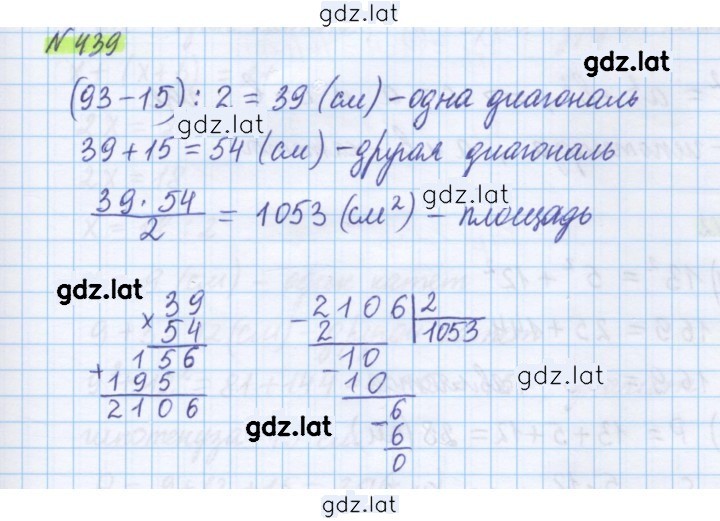 gdz.lat
№ 439
gdz.lat
(93-15) : 2 = 39 (см) - одна диагональ
gdz.lat
39+15 = 54 (см) - другая диагональ
gdz.lat
39 · 54
2
= 1053 (см²) - площадь
gdz.lat
× 39
54
156
+ 195
2106
- 2106 | 2
2 1053
- 10
10
gdz.lat
- 6
6
0
gdz.lat
gdz.lat